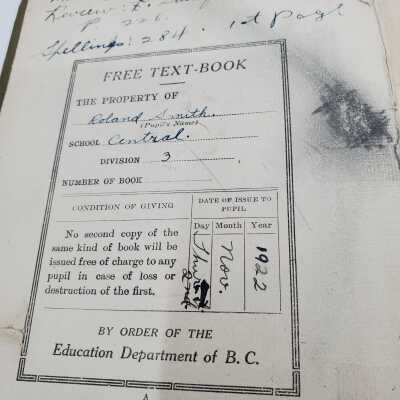 Review
p. 226.
Spellings: 284. 1st Page
FREE TEXT-BOOK
THE PROPERTY OF
Roland Smith.
(Pupil's Name)
SCHOOL Central.
DIVISION 3
NUMBER OF BOOK
CONDITION OF GIVING
DATE OF ISSUE TO PUPIL
Day Month Year
No second copy of the
same kind of book will be
issued free of charge to any
pupil in case of loss or
destruction of the first.
2nd Nov. 1922
BY ORDER OF THE
Education Department of B. C.